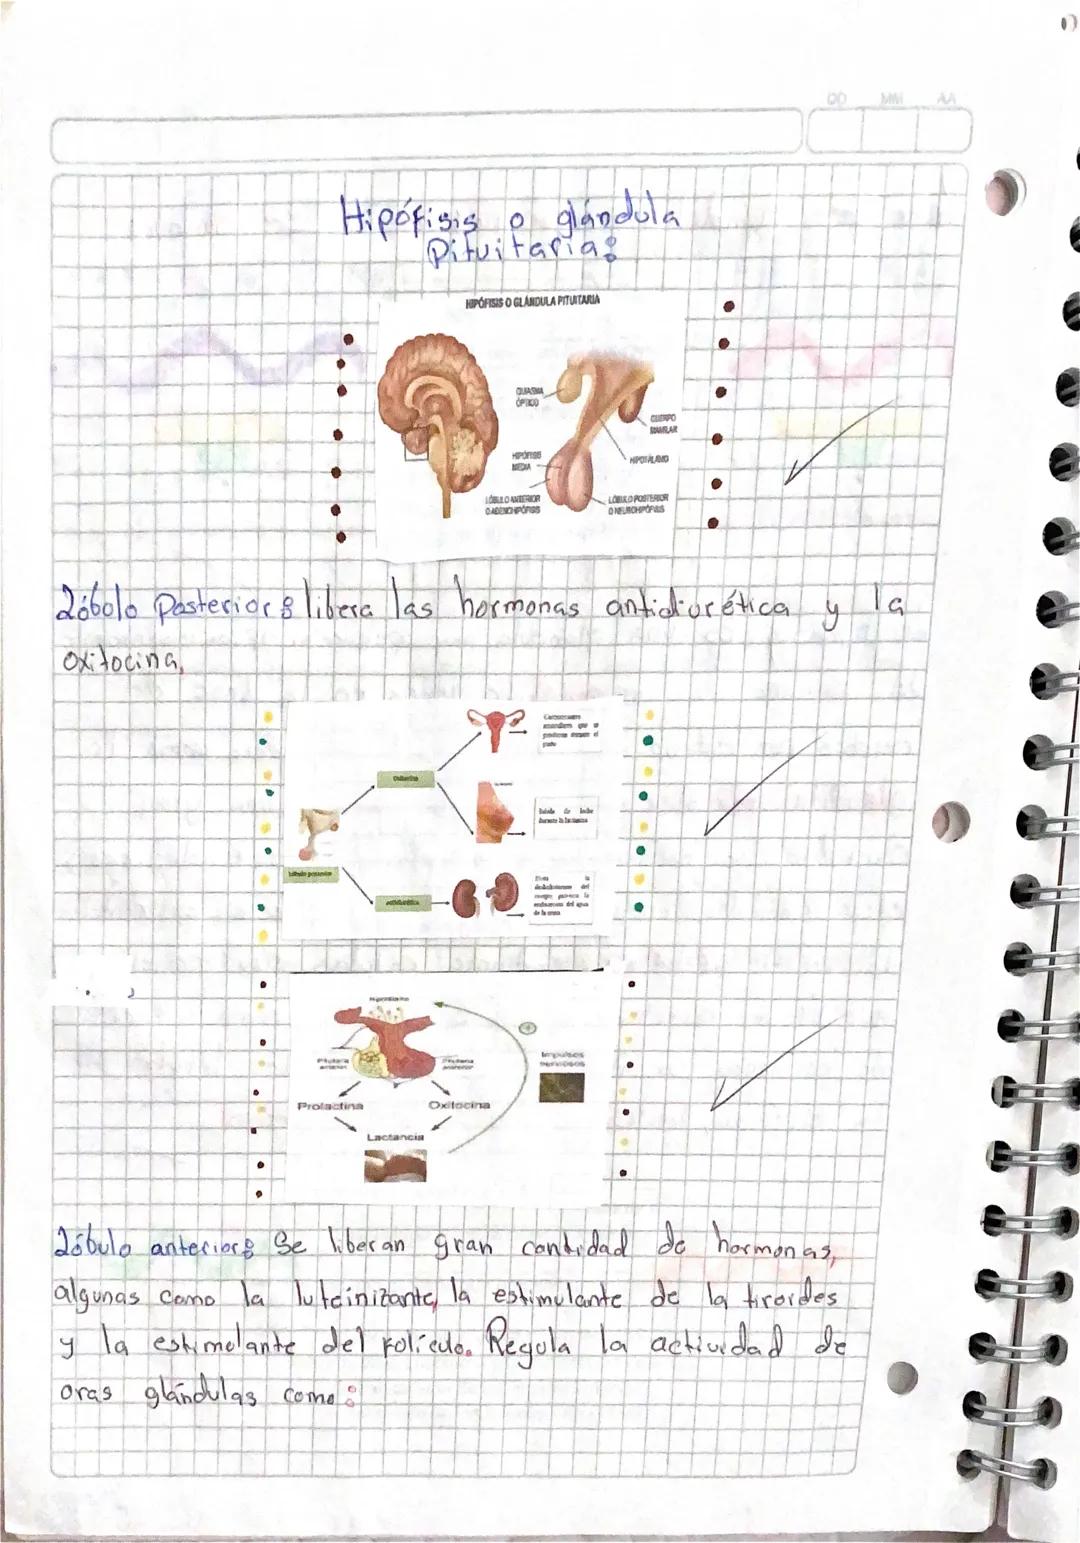 DD MM AA
Hipófisis o glándula
Pituitaria:
HIPÓFISIS O GLÁNDULA PITUITARIA
QUIASMA
ÓPTICO
CUERPO
MAMILAR
HIPÓFISIS
MEDIA
HIPOTÁLAMO
LÓBULO ANTERIOR
O ADENOHIPÓFISIS
LÓBULO POSTERIOR
O NEUROHIPÓFISIS
Lóbolo Posterior: libera las hormonas antidiurética y la
oxitocina.
Oxitocina
durante la lactancia
lóbulo posterior
antidiurética
de la orina
Hipotálamo
Impulsos
nerviosos
Prolactina
Oxitocina
Lactancia
Lóbulo anterior: Se liberan gran cantidad de hormonas,
algunas como la luteinizante, la estimulante de la tiroides
y la estimolante del folículo. Regula la actividad de
oras glándulas como: